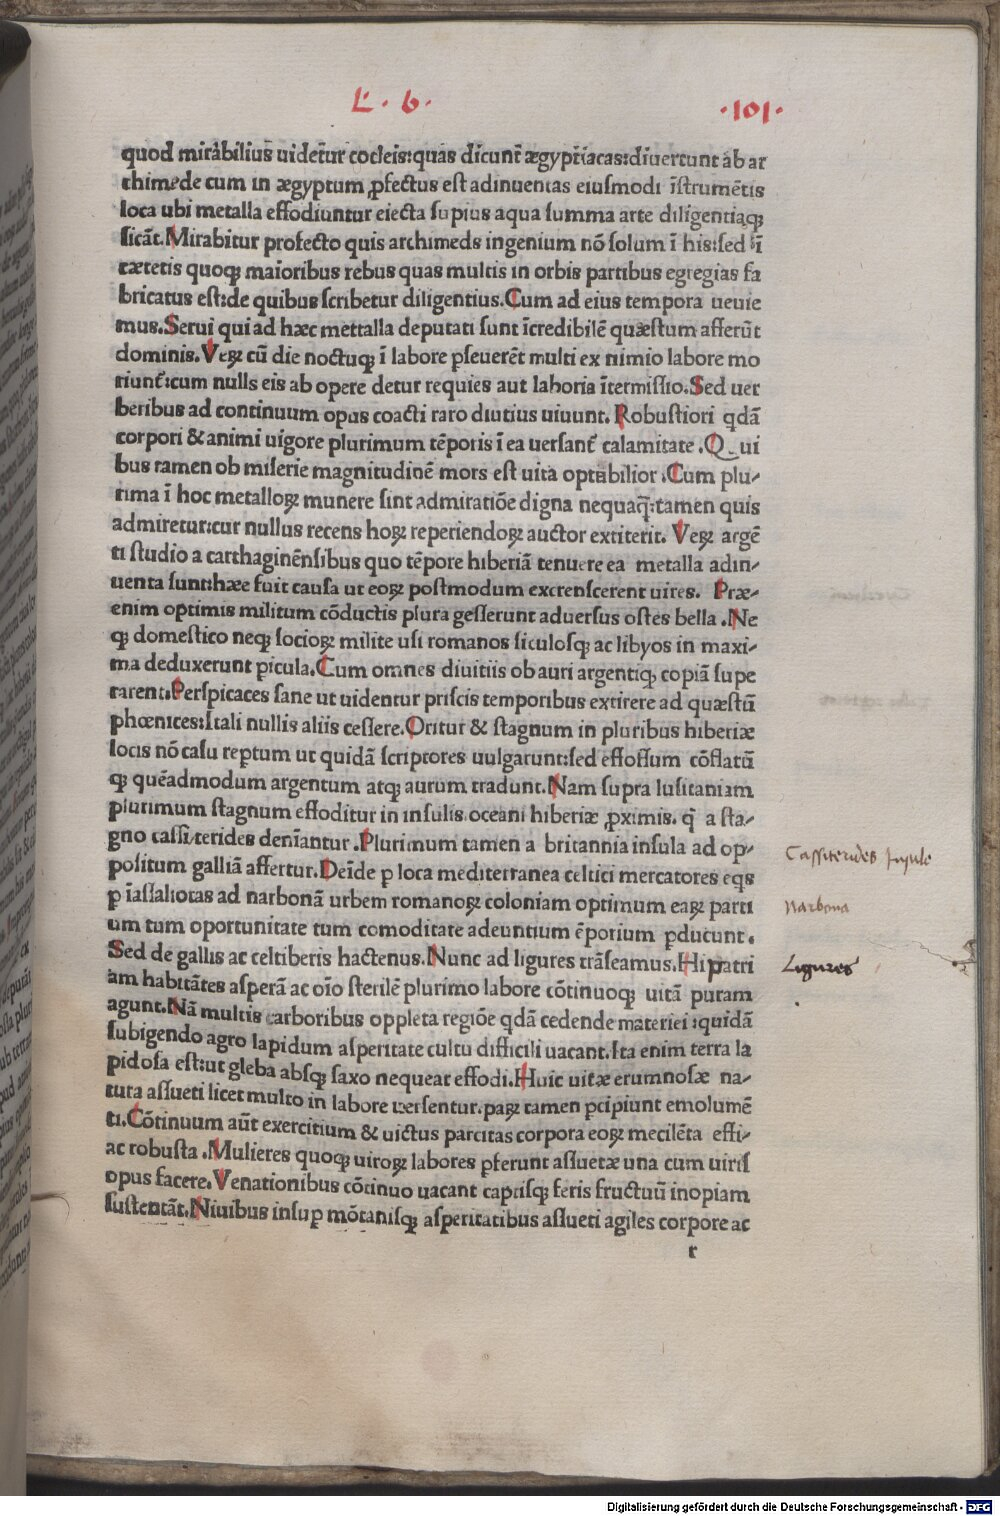 L. 6.
.101.
quod mirabilius uidet̃ur cocleis:quas dicunt̃ ægyptiacas:diuertunt ab ar
chimede cum in ægyptum ꝓfectus est adinuentas eiusmodi ĩstrumẽtis
loca ubi metalla effodiuntur eiecta supius aqua summa arte diligentiaqꝫ
sicãt.Mirabitur profecto quis archimeds ingenium nõ solum ĩ his:sed ĩ
cæteris quoqꝫ maioribus rebus quas multis in orbis partibus egregias fa
bricatus est:de quibus scribetur diligentius.Cum ad eius tempora ueuie
mus.Serui qui ad hæc mettalla deputati sunt ĩcredibilẽ quæstum afferũt
dominis.Veꝝ cũ die noctuqꝫ ĩ labore pseuerẽt multi ex nimio labore mo
riunt̃:cum nulls eis ab opere detur requies aut laboris ĩtermissio.Sed uer
beribus ad continuum opus coacti raro diutius uiuunt.Robustiori qdã
corpori & animi uigore plurimum tẽporis ĩ ea uersant̃ calamitate.Qui
bus tamen ob miserie magnitudinẽ mors est uita optabilior.Cum plu-
rima ĩ hoc metalloꝝ munere sint admiratiõe digna nequaq̃:tamen quis
admiretur:cur nullus recens hoꝝ reperiendoꝝ auctor extiterit. Veꝝ argẽ
ti studio a carthaginẽnsibus quo tẽpore hiberiã tenuere ea metalla adin-
uenta sunt:hæe fuit causa ut eoꝝ postmodum excrenscerent uires. Præ-
enim optimis militum cõductis plura gesserunt aduersus ostes bella.Ne
qꝫ domestico neqꝫ socioꝝ milite usi romanos siculosqꝫ ac libyos in maxi-
ma deduxerunt picula.Cum omnes diuitiis ob auri argentiqꝫ copiã supe
rarent.Perspicaces sane ut uidentur priscis temporibus extirere ad quæstũ
phœnices:Itali nullis aliis cessere.Oritur & stagnum in pluribus hiberiæ
locis nõ casu reptum ut quidã scriptores uulgarunt:sed effossum cõflatũ
qꝫ quẽadmodum argentum atqꝫ aurum tradunt.Nam supra lusitaniam
plurimum stagnum effoditur in insulis oceani hiberiæ ꝓximis. q̃ a sta-
gno cassiterides denĩantur.Plurimum tamen a britannia insula ad op-
positum galliã affertur.Deĩde p loca mediterranea celtici mercatores eqs
p ĩassaliotas ad narbonã urbem romanoꝝ coloniam optimum eaꝝ parti
um tum oportunitate tum comoditate adeuntium ẽporium pducunt.
Sed de gallis ac celtiberis hactenus.Nunc ad ligures trãseamus.Hi patri
am habitãtes asperã ac oĩo sterilẽ plurimo labore cõtinuoqꝫ uitã putam
agunt.Nã multis carboribus oppleta regiõe qdã cedende materiei:quidã
subigendo agro lapidum asperitate cultu difficili uacant.Ita enim terra la
pidosa est:ut gleba absqꝫ saxo nequeat effodi.Huic uitæ erumnosæ na-
tura assueti licet multo in labore uersentur.paꝝ tamen pcipiunt emolumẽ
ti.Cõtinuum aũt exercitium & uictus parcitas corpora eoꝝ mecilẽta effi-
ac robusta.Mulieres quoqꝫ uiroꝝ labores pferunt assuetæ una cum uiris
opus facere.Venationibus cõtinuo uacant captisqꝫ feris fructuũ inopiam
sustentãt.Niuibus insup mõtanisqꝫ asperitatibus assueti agiles corpore ac
r
Cassiterides Insule
Narbona
Ligures
Digitalisierung gefördert durch die Deutsche Forschungsgemeinschaft - DFG